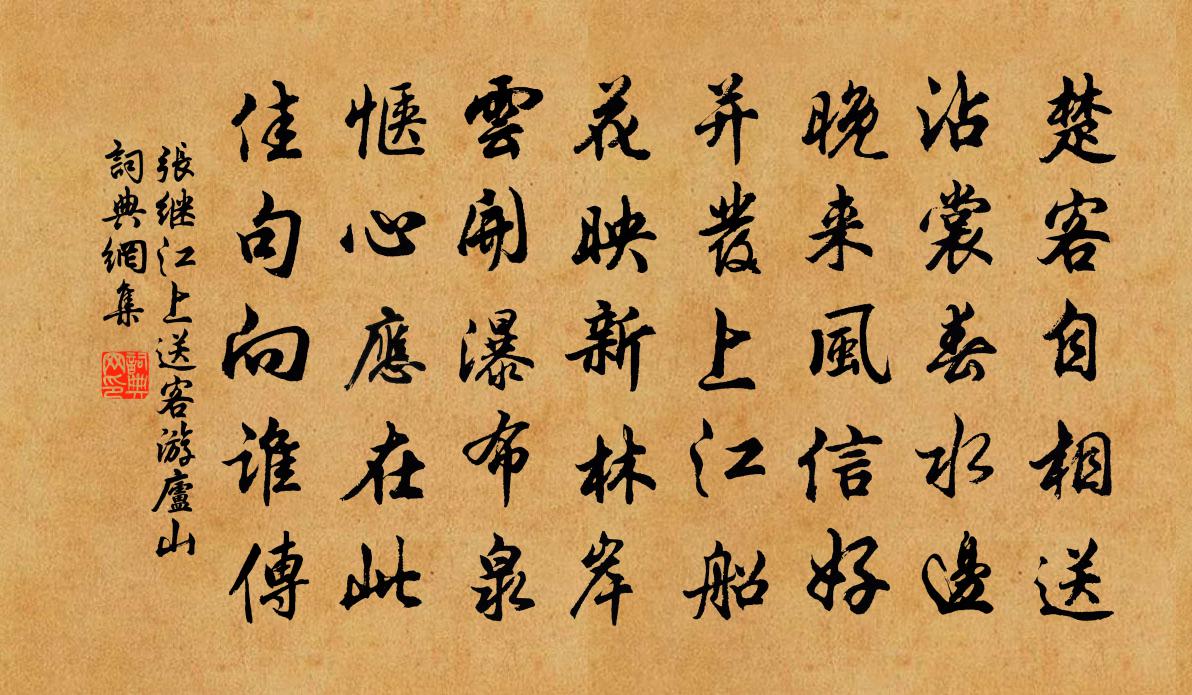 楚客自相送
沾裳春水邊
晚来風信好
并發上江船
花映新林岸
雲開瀑布泉
愜心應在此
佳句向誰傳
張继江上送客游廬山
詞典網集
詞典網印